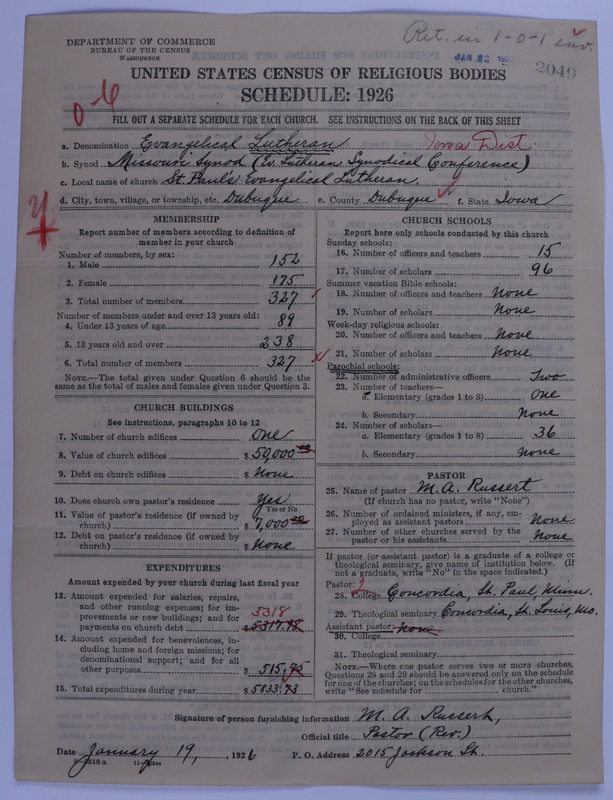 DEPARTMENT OF COMMERCE
BUREAU OF THE CENSUS
WASHINGTON
Ret. in 1-0-1 inv.
2049
UNITED STATES CENSUS OF RELIGIOUS BODIES
SCHEDULE: 1926
0-6
FILL OUT A SEPARATE SCHEDULE FOR EACH CHURCH. SEE INSTRUCTIONS ON THE BACK OF THIS SHEET
a. Denomination Evangelical Lutheran Iowa Dist.
b. Synod Missouri Synod (Ev. Lutheran Synodical Conference)
c. Local name of church St. Paul's Evangelical Lutheran.
d. City, town, village, or township, etc. Dubuque e. County Dubuque f. State Iowa
MEMBERSHIP
Report number of members according to definition of
member in your church
Number of members, by sex:
1. Male 152
2. Female 175
3. Total number of members 327
Number of members under and over 13 years old:
4. Under 13 years of age 89
5. 13 years old and over 238
6. Total number of members 327
NOTE.—The total given under Question 6 should be the
same as the total of males and females given under Question 3.
CHURCH BUILDINGS
See instructions, paragraphs 10 to 12
7. Number of church edifices One
8. Value of church edifices $ 50,000
9. Debt on church edifices $ None
10. Does church own pastor's residence Yes
Yes or No
11. Value of pastor's residence (if owned by
church) $ 7,000
12. Debt on pastor's residence (if owned by
church) $ None
EXPENDITURES
Amount expended by your church during last fiscal year
13. Amount expended for salaries, repairs,
and other running expenses; for im-
provements or new buildings; and for
payments on church debt 5318 $ 5317.98
14. Amount expended for benevolences, in-
cluding home and foreign missions; for
denominational support; and for all
other purposes $ 515.95
15. Total expenditures during year $ 5833.93
CHURCH SCHOOLS
Report here only schools conducted by this church
Sunday schools:
16. Number of officers and teachers 15
17. Number of scholars 96
Summer vacation Bible schools:
18. Number of officers and teachers None
19. Number of scholars None
Week-day religious schools:
20. Number of officers and teachers None
21. Number of scholars None
Parochial schools:
22. Number of administrative officers Two
23. Number of teachers—
a. Elementary (grades 1 to 8) One
b. Secondary None
24. Number of scholars—
a. Elementary (grades 1 to 8) 36
b. Secondary None
PASTOR
25. Name of pastor M. A. Russert
(If church has no pastor, write "None")
26. Number of ordained ministers, if any, em-
ployed as assistant pastors None
27. Number of other churches served by the
pastor or his assistants None
If pastor (or assistant pastor) is a graduate of a college or
theological seminary, give name of institution below. (If
not a graduate, write "No" in the space indicated.)
Pastor: 2
28. College Concordia, St. Paul, Minn.
29. Theological seminary Concordia, St. Louis, Mo.
Assistant pastor: None
30. College
31. Theological seminary
NOTE.—Where one pastor serves two or more churches,
Questions 28 and 29 should be answered only on the schedule
for one of the churches; on the schedules for the other churches,
write "See schedule for church."
Signature of person furnishing information M. A. Russert,
Official title Pastor (Rev.)
Date January 19, 1926 P. O. Address 2015 Jackson St.